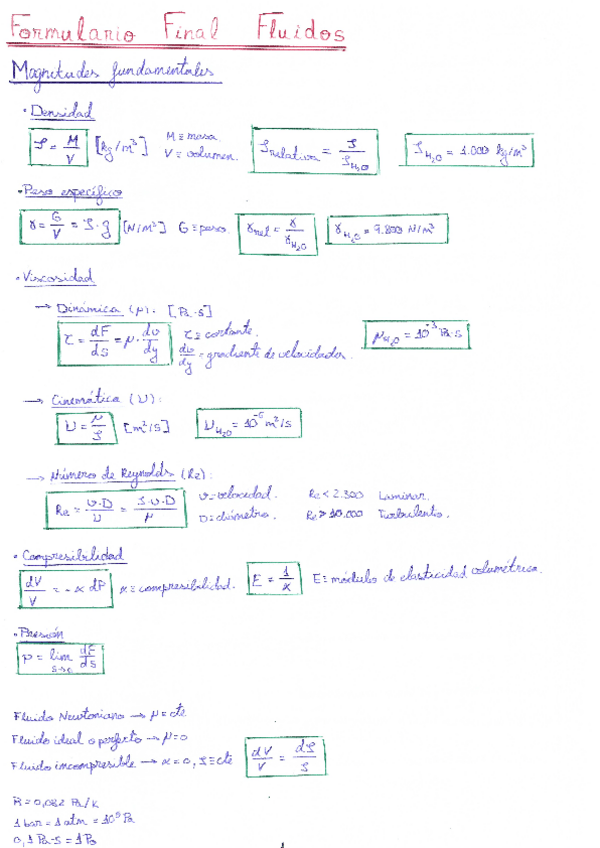 Formulario Final Fluidos
Magnitudes fundamentales
· Densidad
ρ = M/V [kg/m³] M ≡ masa. V ≡ volumen. ρrelativa = ρ/ρH₂O ρH₂O = 1.000 kg/m³
· Peso específico
γ = G/V = ρ·g [N/m³] G ≡ peso. γrel = γ/γH₂O γH₂O = 9.800 N/m³
· Viscosidad
→ Dinámica (μ): [Pa·s]
τ = dF/ds = μ·dv/dy τ ≡ cortante. μH₂O = 10⁻³ Pa·s
dv/dy = gradiente de velocidades.
→ Cinemática (υ):
υ = μ/ρ [m²/s] υH₂O = 10⁻⁶ m²/s
→ Números de Reynolds (Re):
Re = v·D/υ = ρ·v·D/μ v = velocidad. Re < 2.300 Laminar.
D = diámetro. Re > 10.000 Turbulento.
· Compresibilidad
dV/V = -α dP α ≡ compresibilidad. E = 1/α E ≡ módulo de elasticidad volumétrica.
· Presión
p = lim s→0 dF/ds
Fluido Newtoniano → μ = cte
Fluido ideal o perfecto → μ = 0
Fluido incompresible → α = 0, ρ ≡ cte dV/V = dρ/ρ
R = 0,082 Pa/K
1 bar = 1 atm = 10⁵ Pa
0,1 Pa·s = 1 Po
1